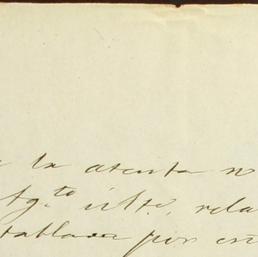 la atenta n
Agto últo, rela
tablada por es